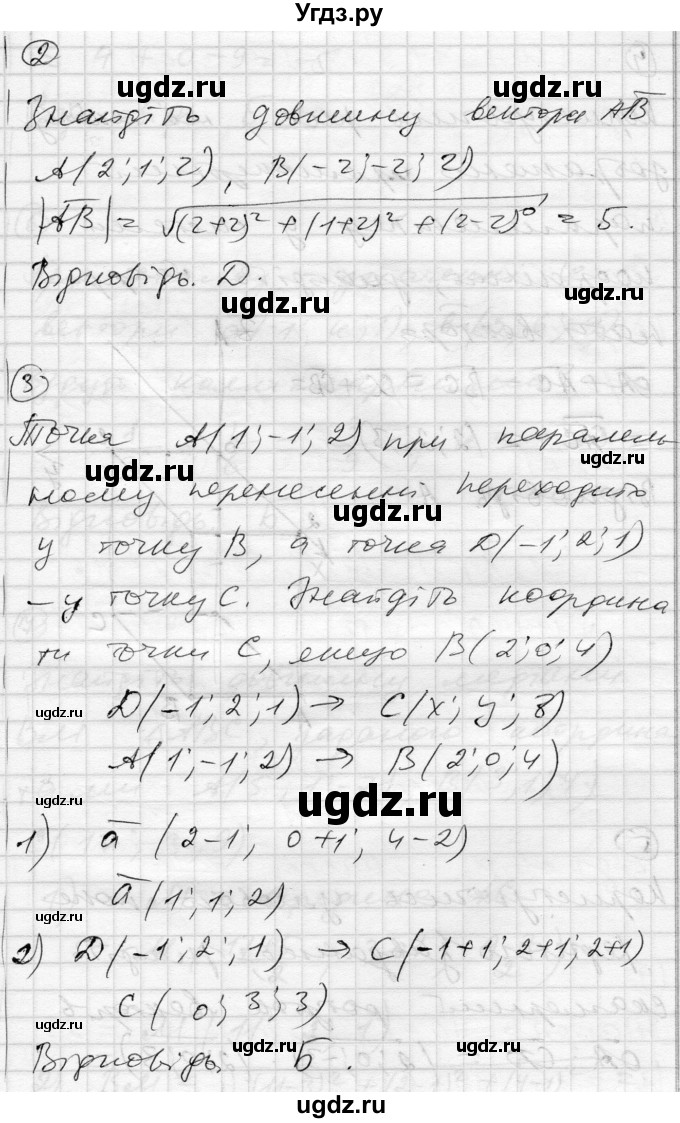 Угдз.ру
②
ugdz.ru ugdz.ru
Знайдіть довжину вектора AB̅
A(2; 1; 2), B(-2; -2; 2)
|A̅B̅| = √(2+2)² + (1+2)² + (2-2)² = 5.
Відповідь. Д.
ugdz.ru ugdz.ru
③
Точка A(1; -1; 2) при паралель
ugdz.ru ugdz.ru
ному перенесенні переходить
ugdz.ru
у точку B, а точка D(-1; 2; 1)
- у точку C. Знайдіть координа
ugdz.ru ugdz.ru
ти точки C, якщо B(2; 0; 4)
D(-1; 2; 1) → C(x; y; z)
ugdz.ru
A(1; -1; 2) → B(2; 0; 4)
ugdz.ru
1) a̅ (2-1; 0+1; 4-2)
a̅(1; 1; 2)
ugdz.ru
2) D(-1; 2; 1) → C(-1+1; 2+1; 2+1)
C(0; 3; 3)
ugdz.ru
Відповідь. Б.
ugdz.ru ugdz.ru
ugdz.ru
ugdz.ru